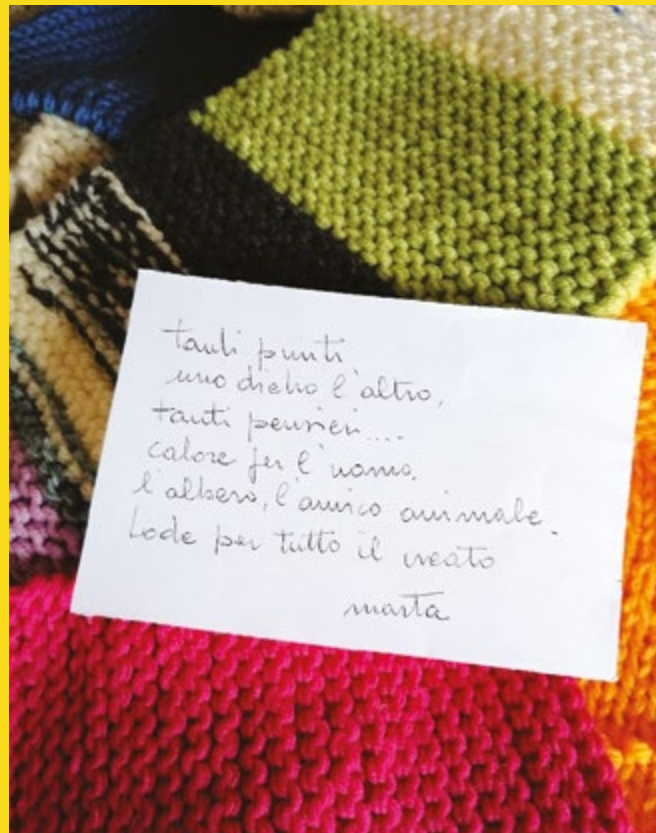 tanti punti
uno dietro l'altro,
tanti pensieri....
calore per l'uomo,
l'albero, l'amico animale.
Lode per tutto il creato
marta